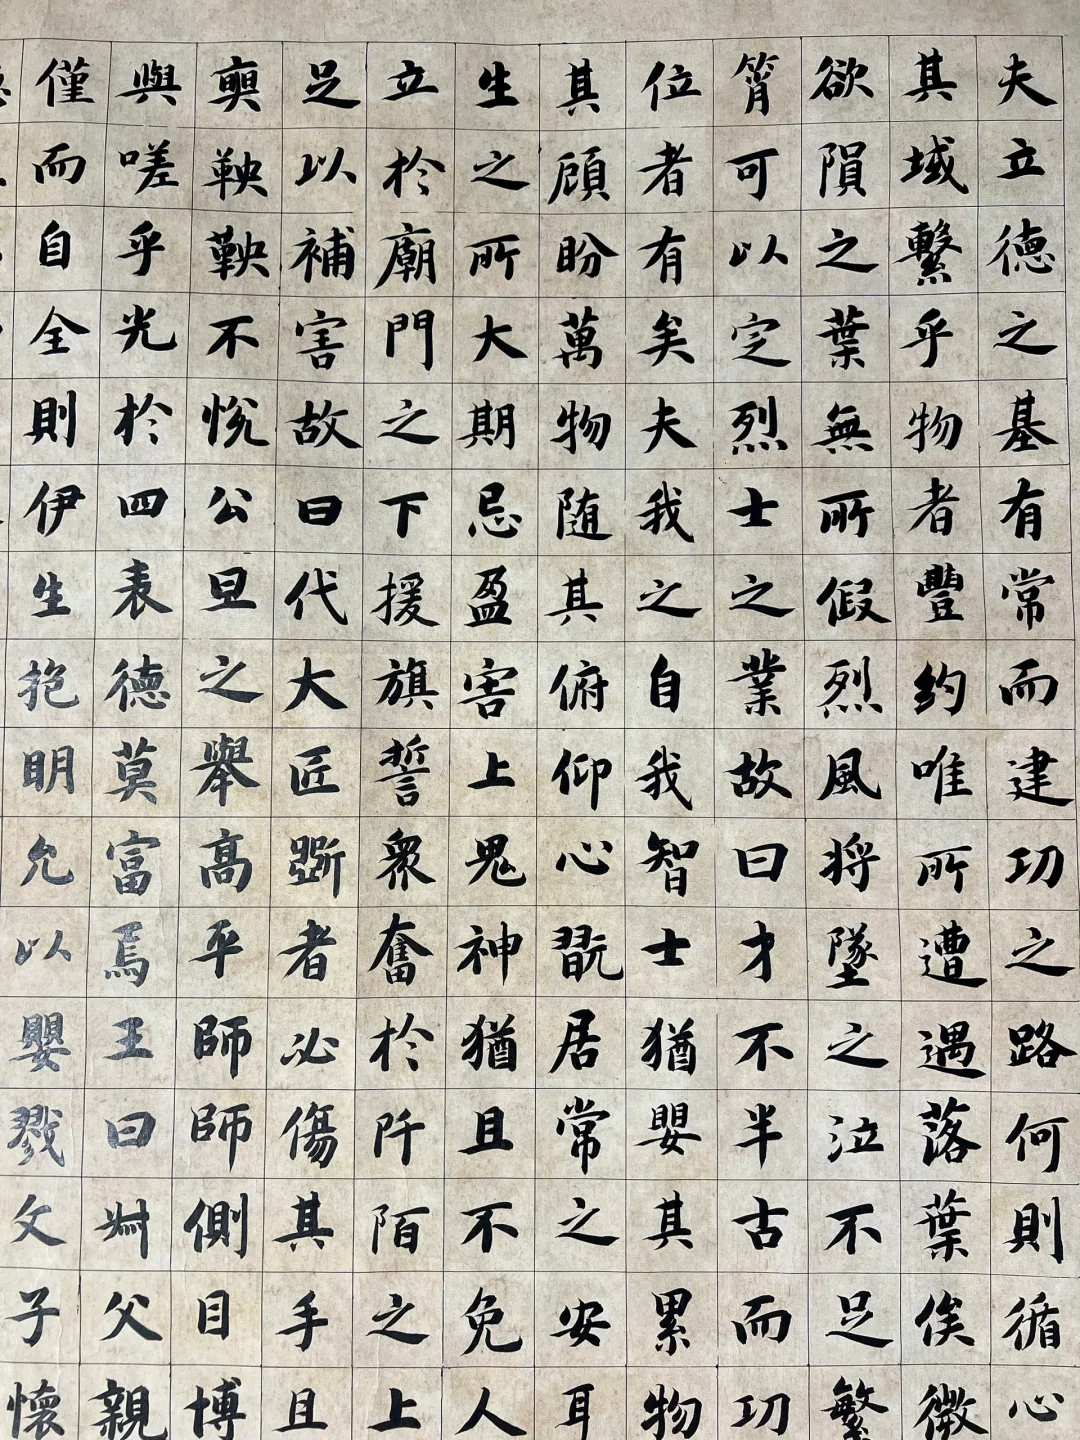 夫立德之基有常而建功之路何則循心
其域繫乎物者豐約唯所遭遇落葉俟微
欲隕之葉無所假烈風将墜之泣不足繁
筲可以定烈士之業故曰才不半古而功
位者有矣夫我之自我智士猶嬰其累物
其顧盼萬物随其俯仰心翫居常之安耳
生之所大期忌盈害上鬼神猶且不免人
立於廟門之下援旗誓衆奮於阡陌之上
足以補害故曰代大匠斲者必傷其手且
奭鞅鞅不悅公旦之舉高平師師側目博
與嗟乎光於四表德莫富焉王曰叔父親
僅而自全則伊生抱明允以嬰戮文子懷